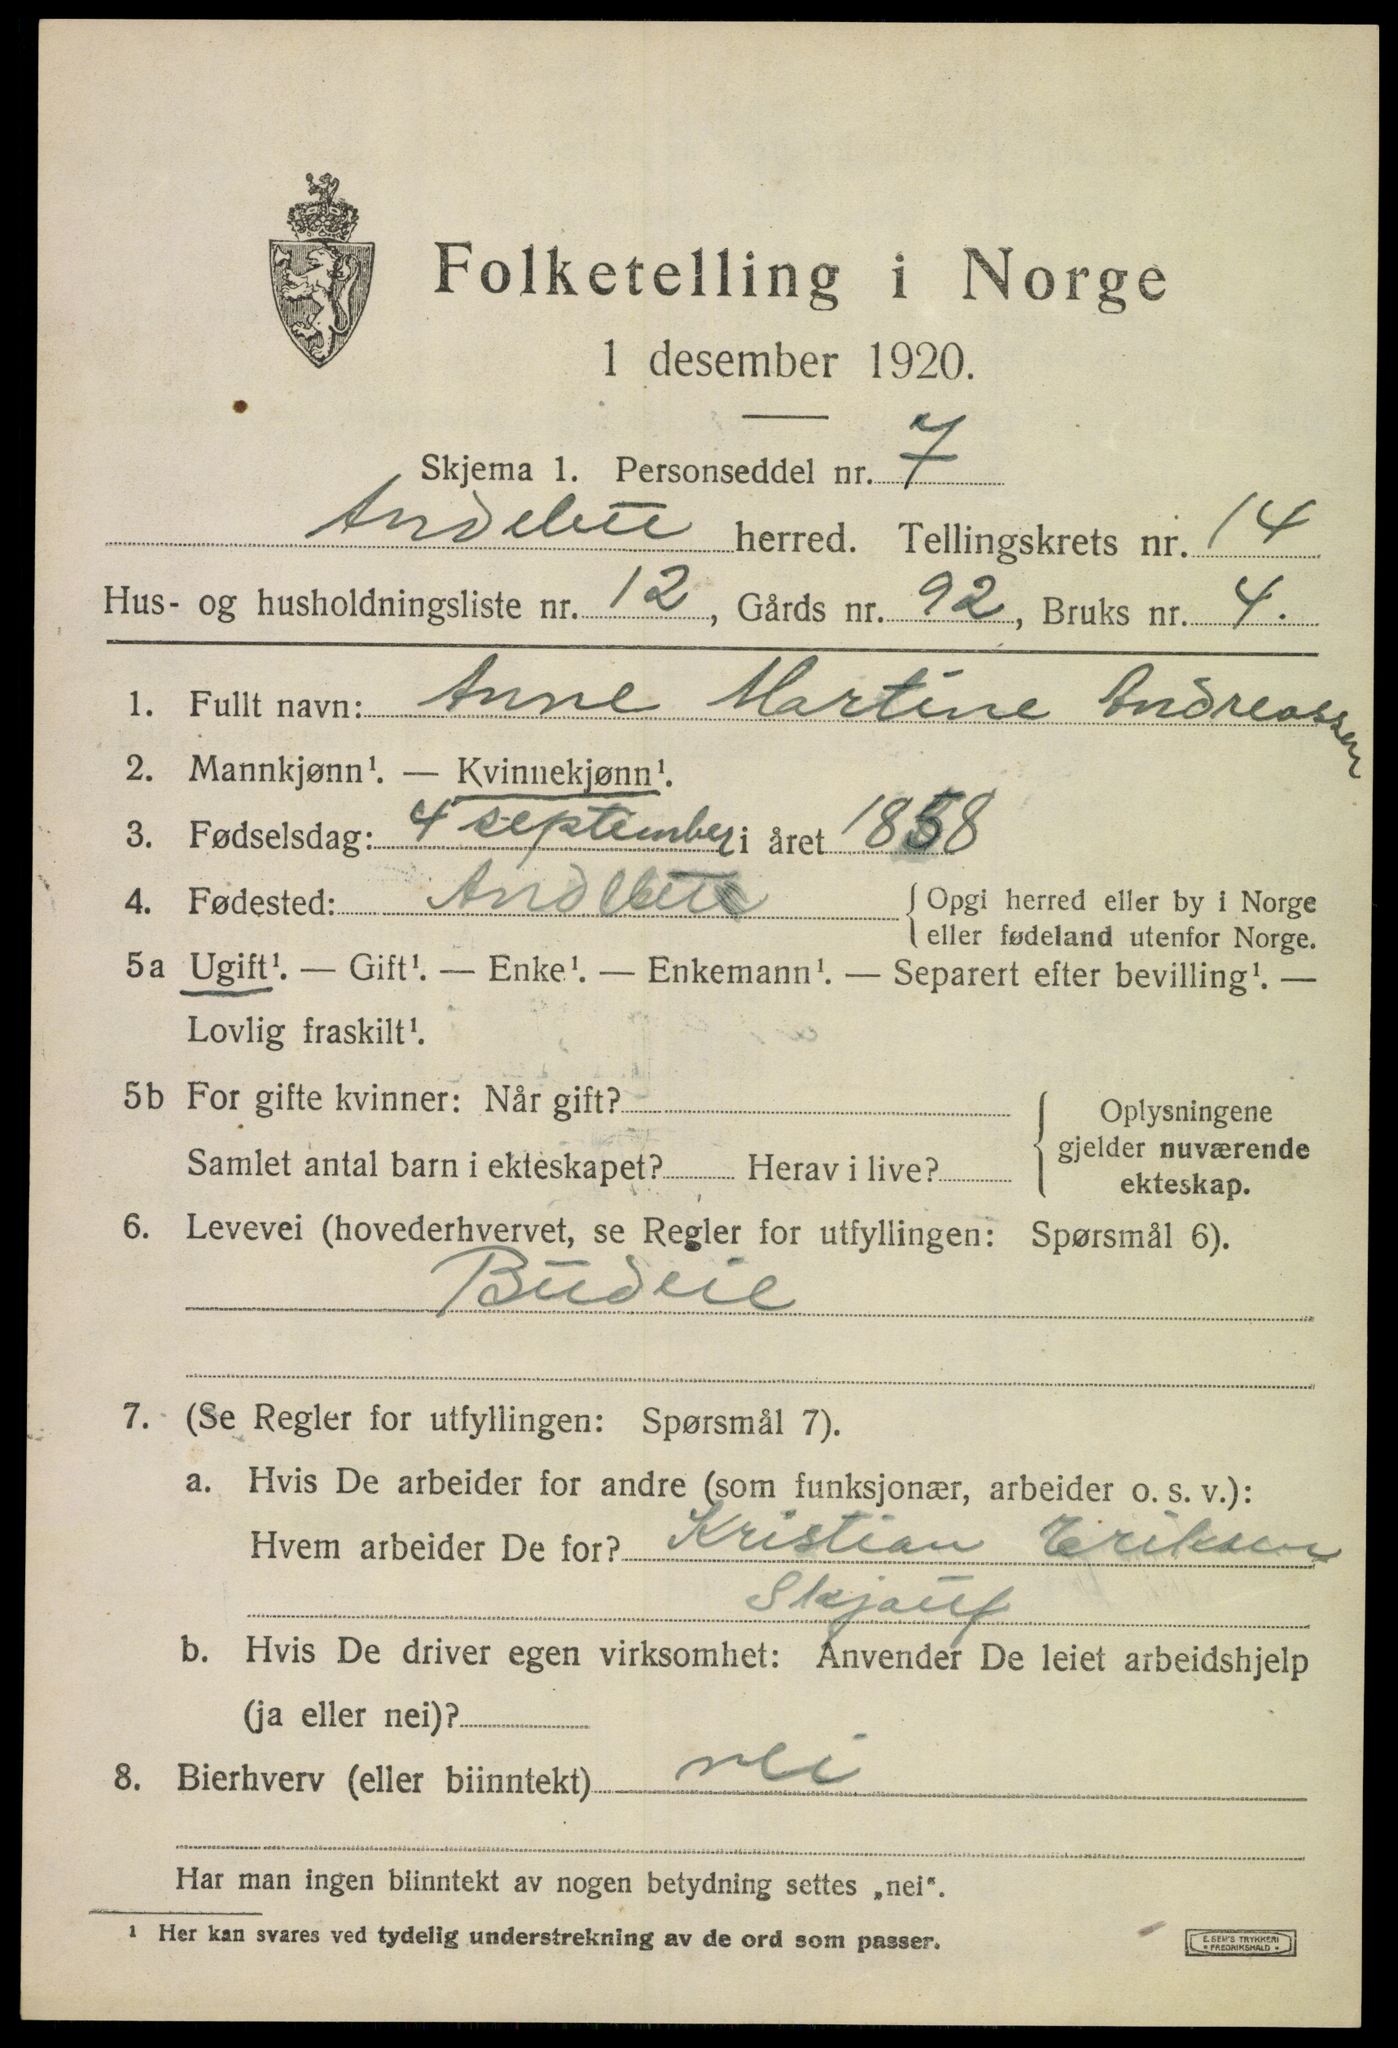 Folketelling i Norge
1 desember 1920.
Skjema 1. Personseddel nr. 7
Andebu herred. Tellingskrets nr. 14
Hus- og husholdningsliste nr. 12, Gårds nr. 92, Bruks nr. 4.
1. Fullt navn: Anne Martine Andreassen
2. Mannkjønn¹. — Kvinnekjønn¹.
3. Fødselsdag: 4 september i året 1858
4. Fødested: Andebu { Opgi herred eller by i Norge
eller fødeland utenfor Norge.
5a Ugift¹. — Gift¹. — Enke¹. — Enkemann¹. — Separert efter bevilling¹. —
Lovlig fraskilt¹.
5b For gifte kvinner: Når gift? { Oplysningene
gjelder nuværende
Samlet antal barn i ekteskapet? Herav i live? ekteskap.
6. Levevei (hovederhvervet, se Regler for utfyllingen: Spørsmål 6).
Budeie
7. (Se Regler for utfyllingen: Spørsmål 7).
a. Hvis De arbeider for andre (som funksjonær, arbeider o. s. v.):
Hvem arbeider De for? Kristian Eriksen
Skjauf
b. Hvis De driver egen virksomhet: Anvender De leiet arbeidshjelp
(ja eller nei)?
8. Bierhverv (eller biinntekt) nei
Har man ingen biinntekt av nogen betydning settes „nei“.
¹ Her kan svares ved tydelig understrekning av de ord som passer.
E. SEM'S TRYKKERI
* FREDRIKSHALD *